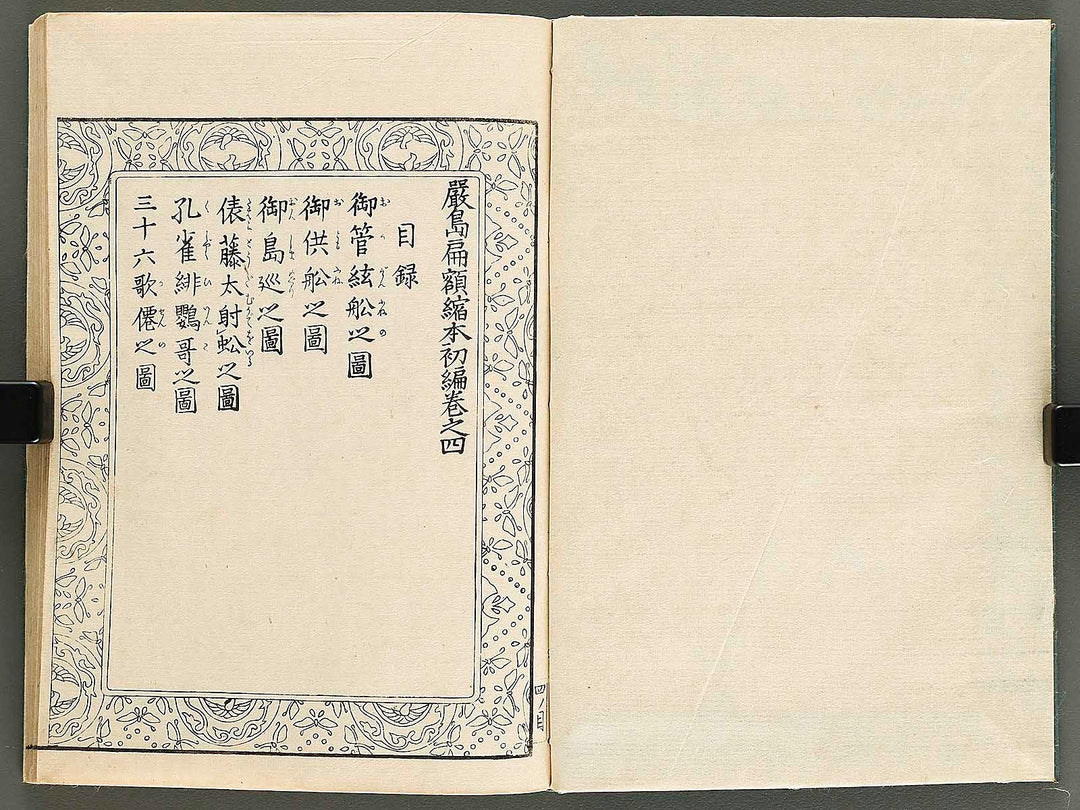 嚴島扁額縮本初編卷之四
目録
御管絃舩之圖
御供舩之圖
御島廵之圖
俵藤太射蚣之圖
孔雀緋鸚哥之圖
三十六歌僊之圖